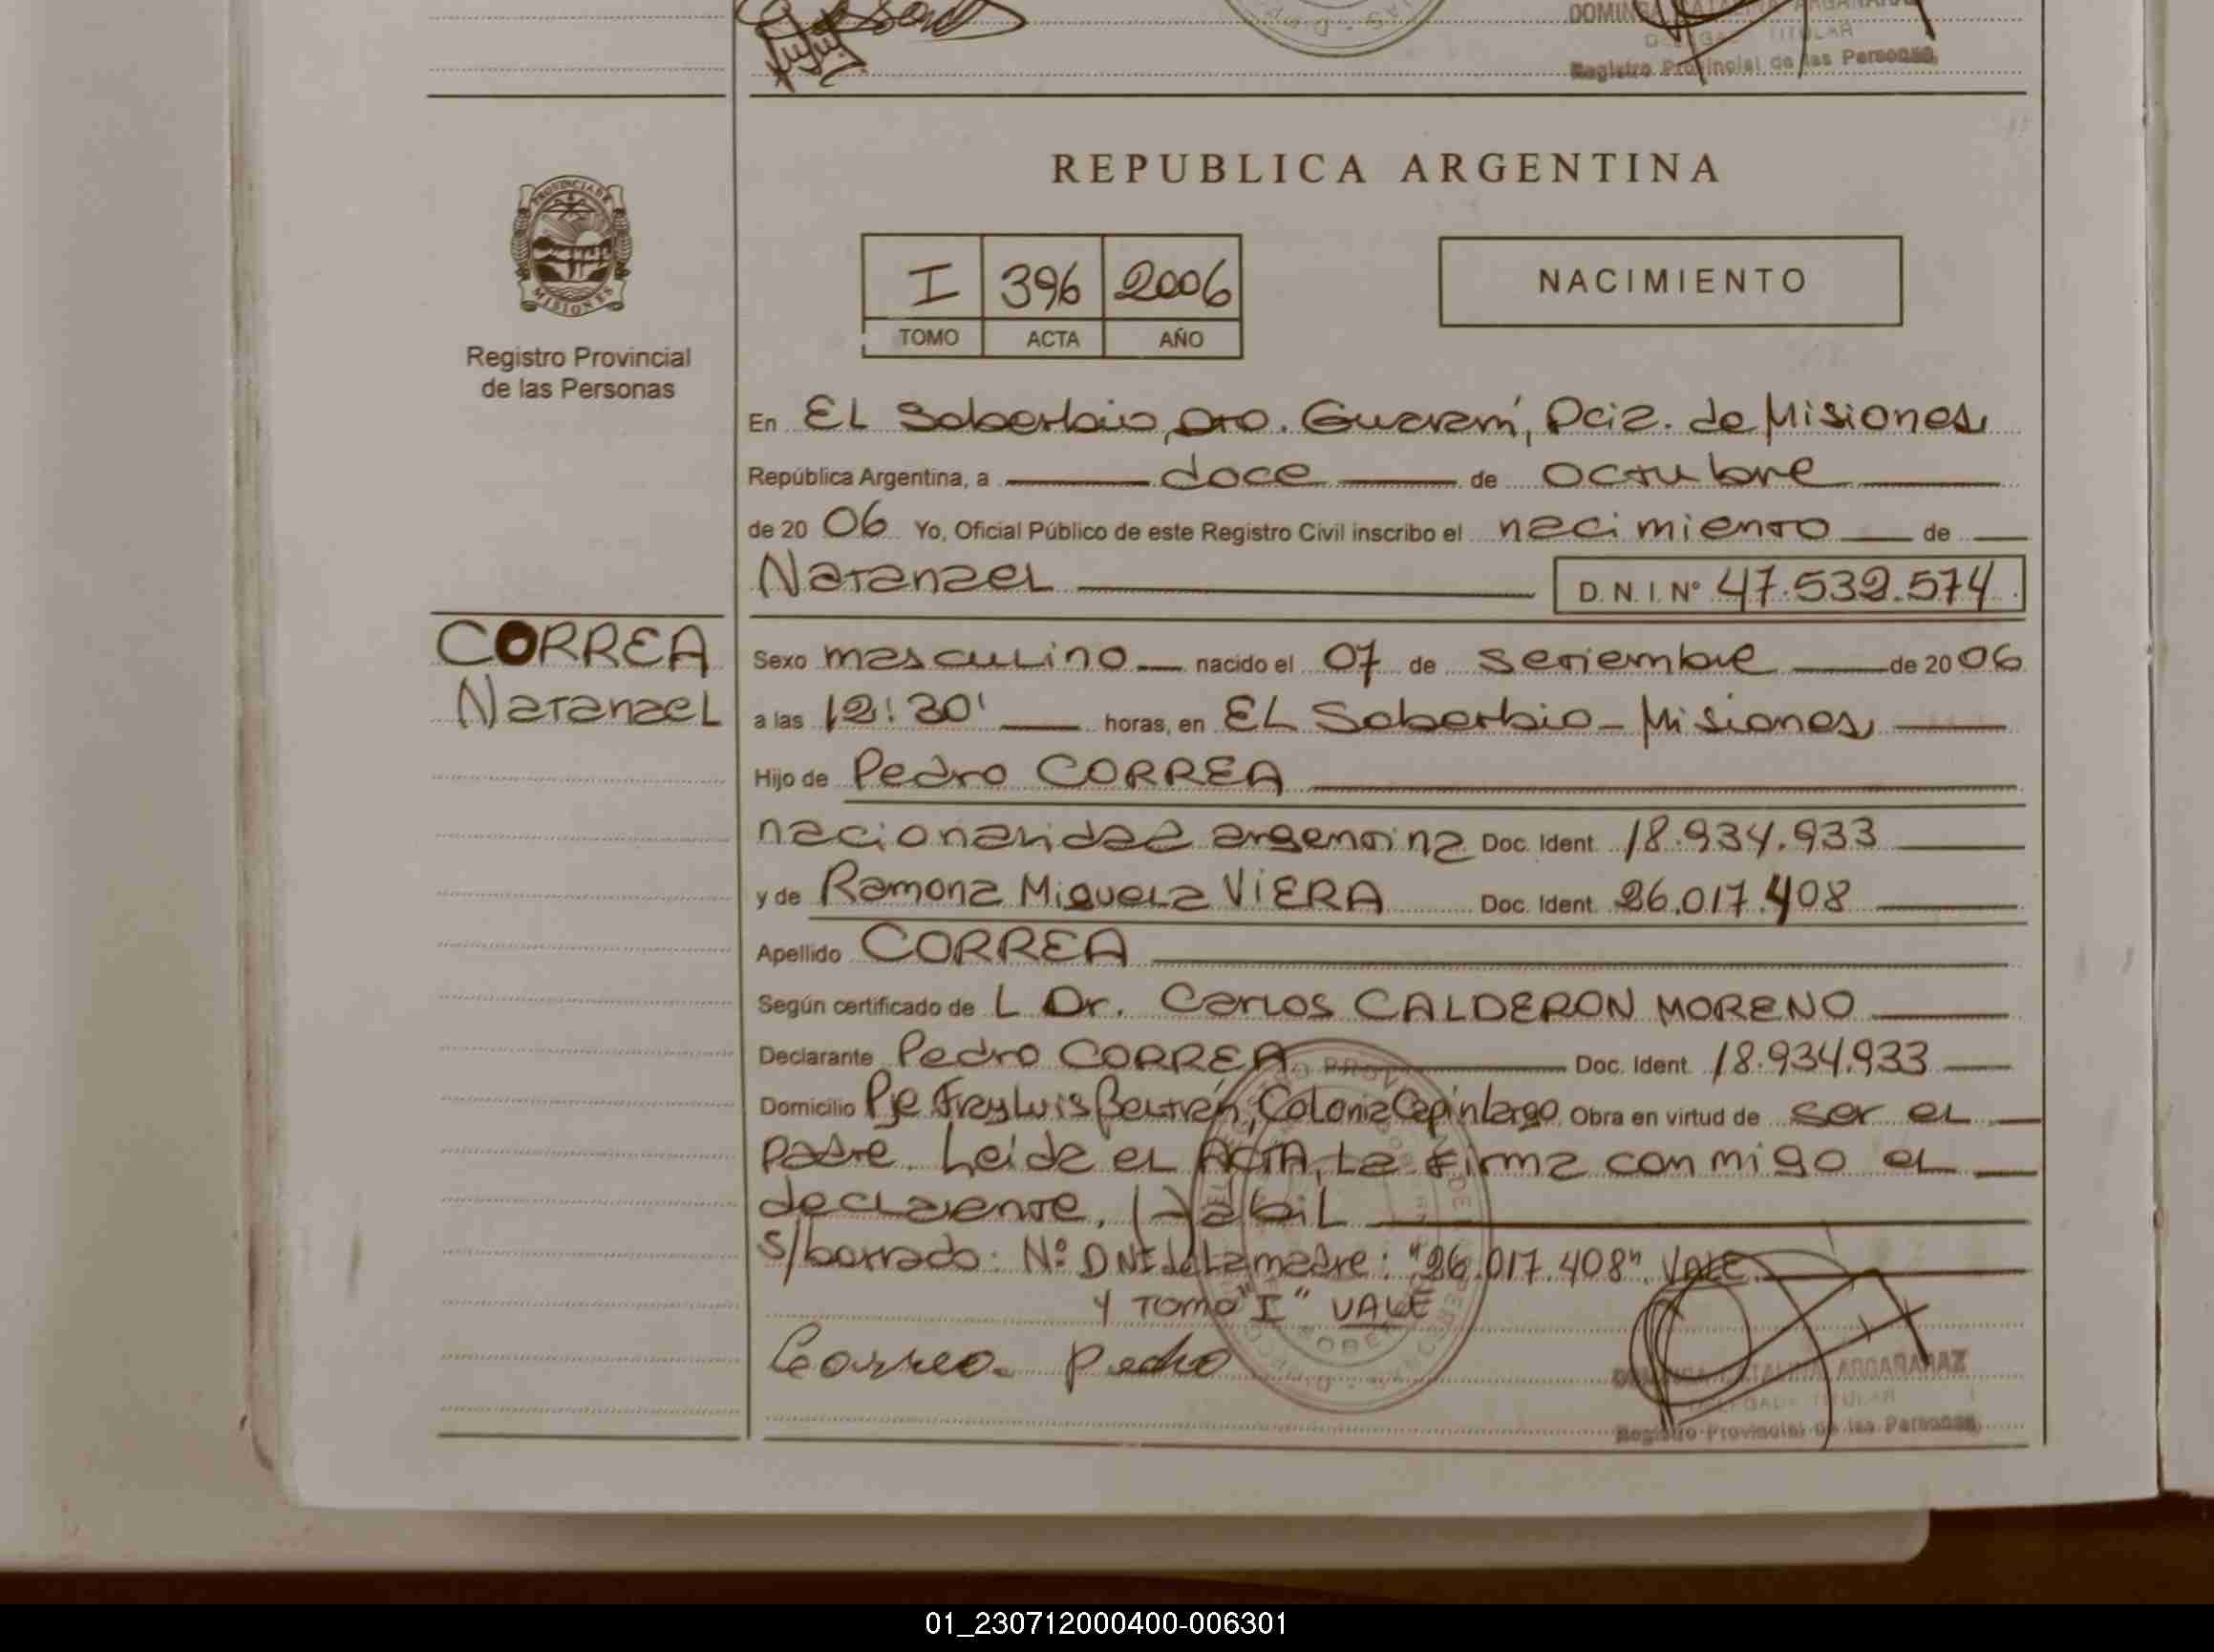 Registro Provincial de las Personas
REPUBLICA ARGENTINA
PROVINCIA DE
MISIONES
Registro Provincial
de las Personas
I 396 2006
TOMO ACTA AÑO
NACIMIENTO
En EL Soberbio, Dto. Guaraní, Pcia. de Misiones
República Argentina, a doce de octubre
de 20 06 Yo, Oficial Público de este Registro Civil inscribo el nacimiento de
Natanael D.N.I. Nº 47.532.574
CORREA
Natanael
Sexo masculino nacido el 07 de setiembre de 20 06
a las 12:30' horas, en EL Soberbio - Misiones
Hijo de Pedro CORREA
nacionalidad argentina Doc. Ident. 18.934.933
y de Ramona Miguela VIERA Doc. Ident. 26.017.408
Apellido CORREA
Según certificado de L Dr. Carlos CALDERON MORENO
Declarante Pedro CORREA Doc. Ident. 18.934.933
Domicilio Pje Fray Luis Beltrán, Colonia Capin Largo Obra en virtud de ser el
padre. Leida el ACTA, la firma conmigo el
declarante. Habil
S/borrado: Nº DNI de la madre: "26.017.408". VALE
y Tomo "I" VALE
Correa Pedro
CATALINA ARGAÑARAZ
TITULAR
Registro Provincial de las Personas
01_230712000400-006301